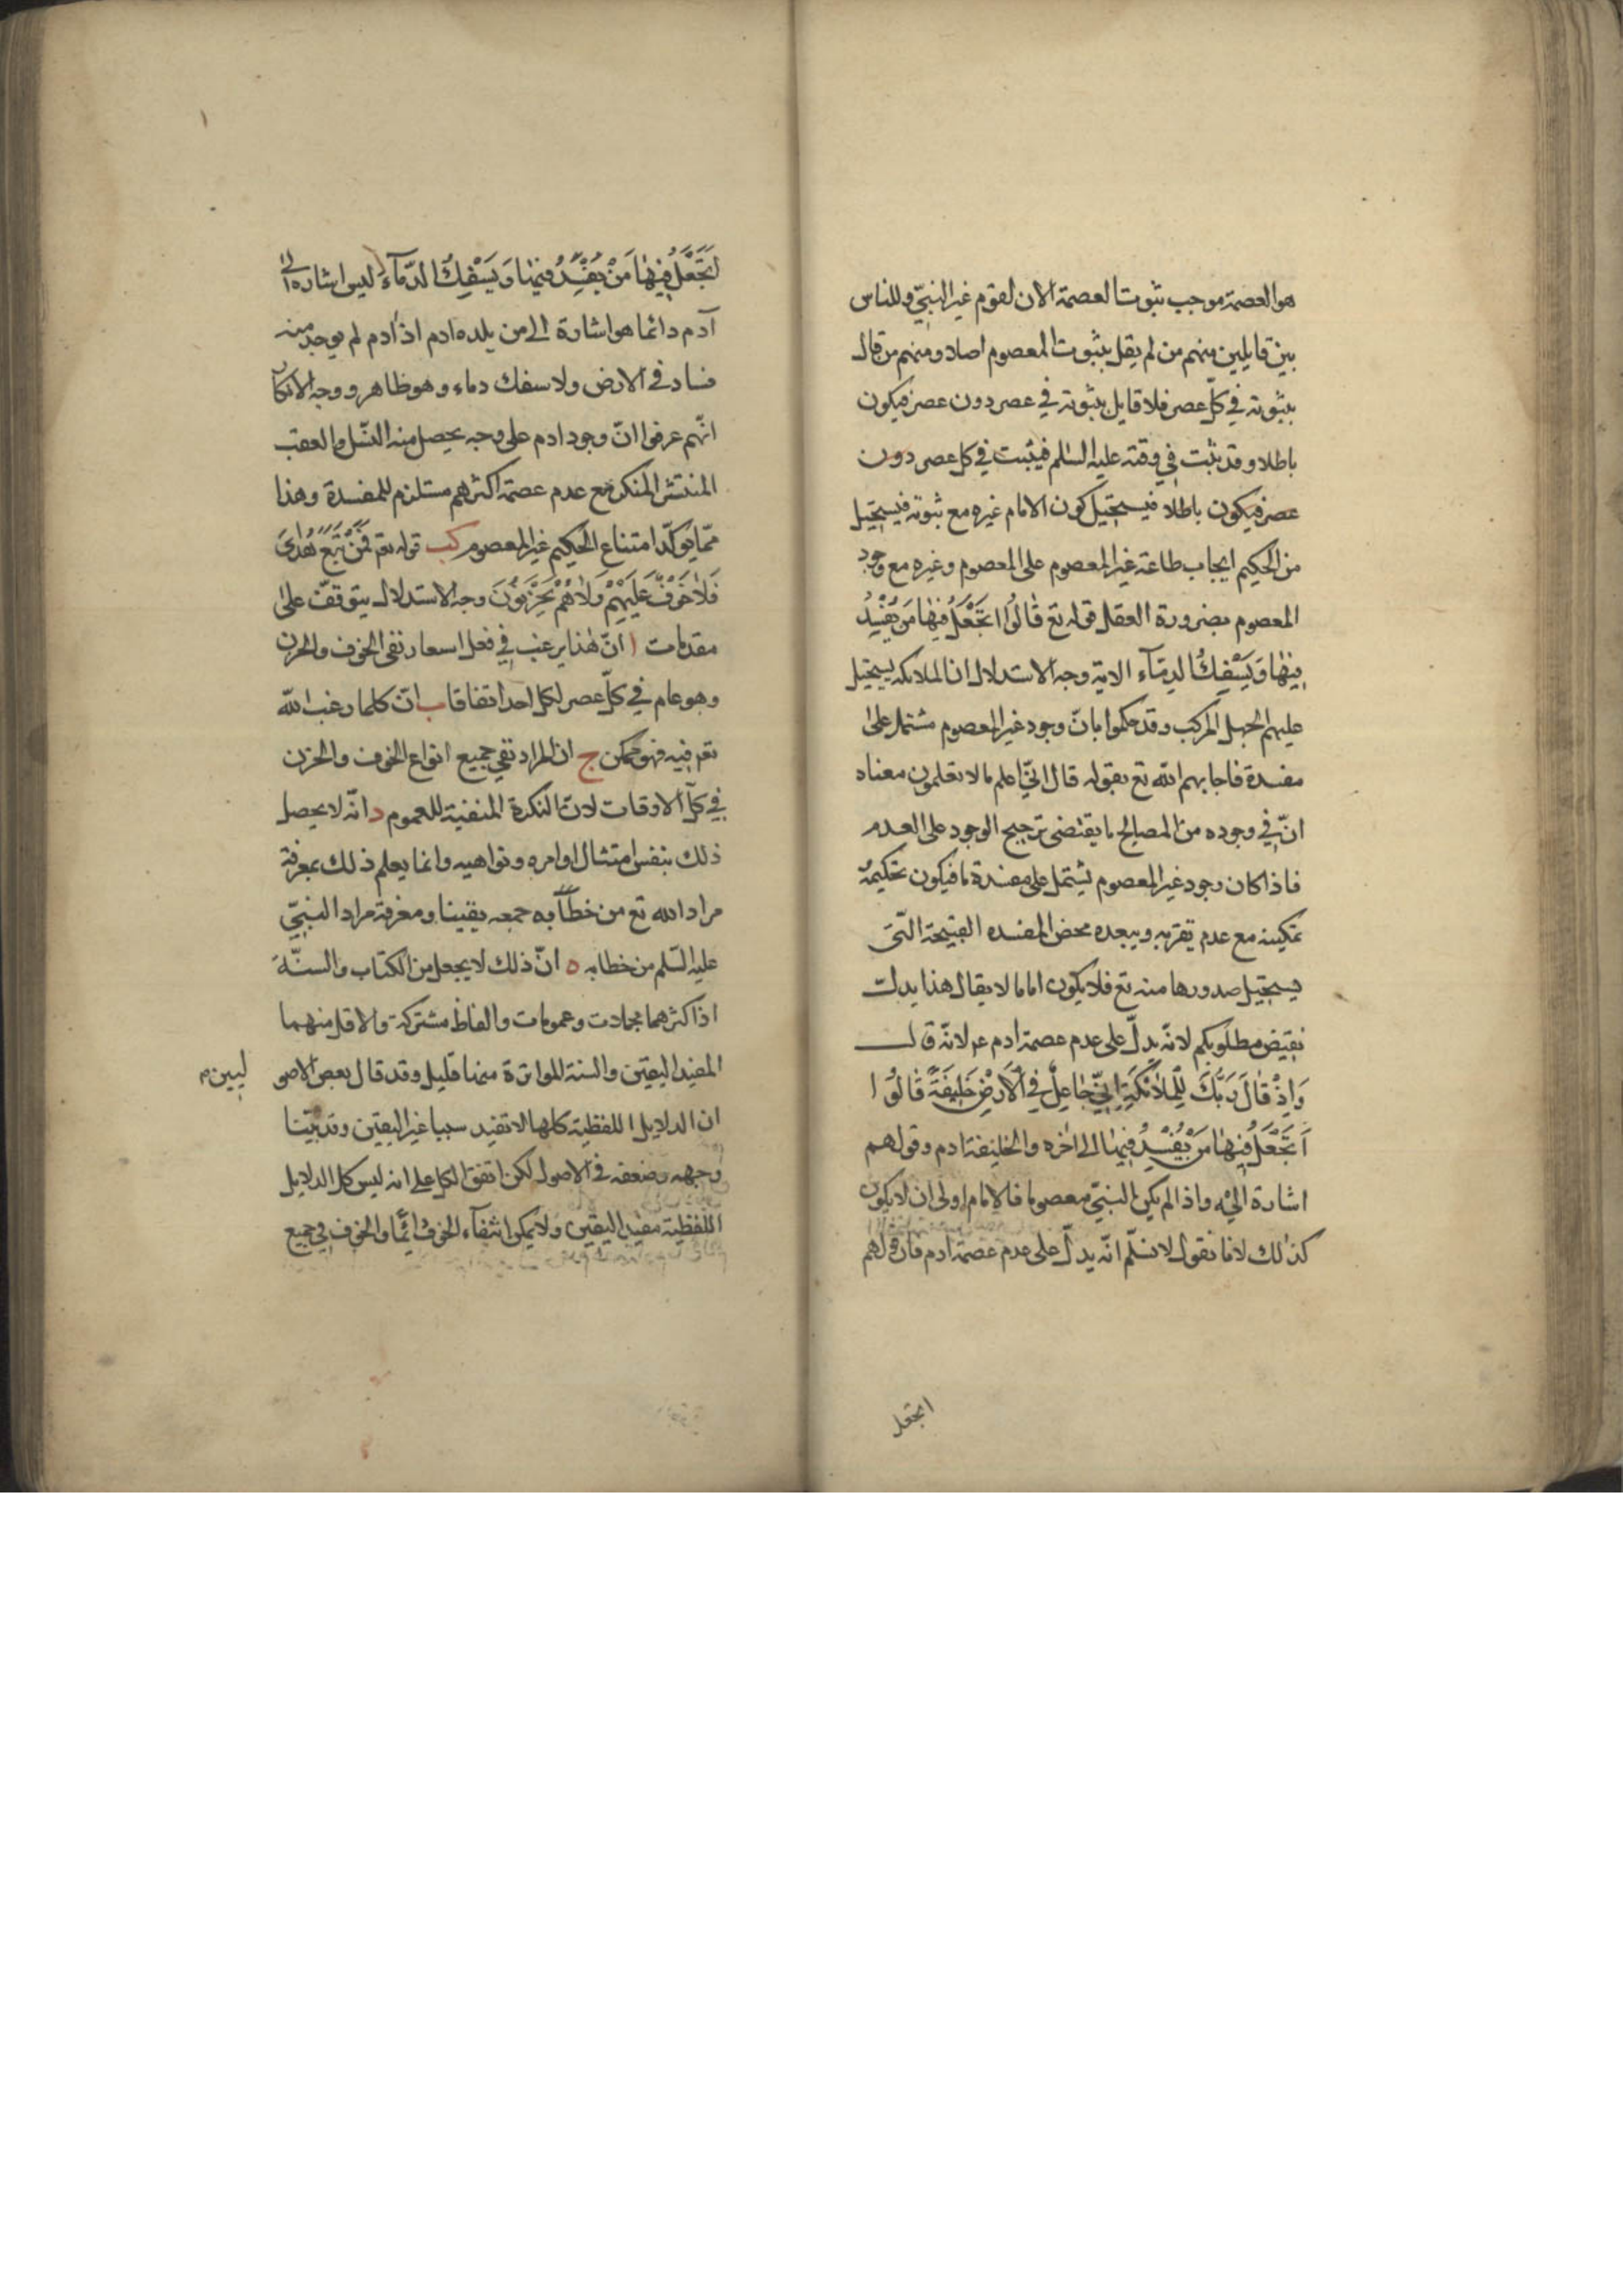 هو العصمة موجب ثبوت العصمة الان لقوم غير النبيّ وللناس
بين قايلين منهم من لم يقل بثبوت المعصوم اصلا ومنهم من قال
بثبوته في كلّ عصر فلا قايل بثبوته في عصر دون عصر فيكون
باطلا وقد ثبت في وقته عليه السّلم فيثبت في كل عصر دون
عصر فيكون باطلا فيستحيل كون الامام غيره مع ثبوته فيستحيل
من الحكيم ايجاب طاعة غير المعصوم على المعصوم وغيره مع وجود
المعصوم بضرورة العقل قوله تع قٰالُوا اَتَجْعَلُ فِيهٰا مَن يُفْسِدُ
فِيهٰا وَيَسْفِكُ الدِمّآء الاية وجه الاستدلال ان الملائكة يستحيل
عليهم الجهل المركب وقد حكموا بانّ وجود غير المعصوم مشتمل على
مفسدة فاجابهم الله تع بقوله قال انّي اعلم ما لا تعلمون معناه
انّ في وجوده من المصالح ما يقتضى ترجيح الوجود على العدم
فاذا كان وجود غير المعصوم يشتمل على مفسدة ما فيكون تحكيمه
تمكينه مع عدم يقربه ويبعده محض المفسده القبيحة الّتى
يستحيل صدورها منه تع فلا يكون اماما لا يقال هذا يدلّ
نقيض مطلوبكم لانّه يدلّ على عدم عصمة ادم ع لانّه قال
وَاِذْ قٰالَ رَبُّكَ لِلْمَلاٰئِكَةِ اِنِّي جٰاعِلٌ فِي الْاَرْضِ خَلِيفَةً قٰالُوا
اَتَجْعَلُ فِيهٰا مَنْ يُفْسِدُ فِيهٰا الى اٰخره والخليفة ادم وقولهم
اشارة اليه واذا لم يكن النبيّ معصوما فالامام اولى ان لا يكون
كذلك لانا نقول لا نسلّم انّه يدلّ على عدم عصمة ادم فان قولهم
اتجعل
اَتَجْعَلُ فِيهٰا مَنْ يُفْسِدُ فيهٰا وَيَسْفِكُ الدّمآءَ ليس اشارة الى
آدم دائما هو اشارة الى من يلده ادم اذ ادم لم يوجد منه
فساد في الارض ولا سفك دماء وهو ظاهر ووجه الانكار
انّهم عرفوا انّ وجود ادم على وجه يحصل منه النّسل والعقب
المنتشر المنكر مع عدم عصمة اكثرهم مستلزم للمفسدة وهذا
ممّا يؤكّد امتناع الحكيم غير المعصوم كب قوله تع فَمَنْ تَبِعَ هُدٰايَ
فَلاٰ خَوْفٌ عَلَيْهِمْ وَلاٰ هُمْ يَحْزَنُونَ وجه الاستدلال يتوقف على
مقدمات ا انّ هذا يرغب في فعل اسعار نفى الخوف والحزن
وهو عام في كلّ عصر لكل احد اتفاقا ب انّ كلما رغب الله
تع فيه فهو ممكن ج ان المراد نفي جميع انواع الخوف والحزن
في كلّ الاوقات لانّ النكرة المنفية للعموم د انّه لا يحصل
ذلك بنفس امتثال اوامره ونواهيه وانما يعلم ذلك بمعرفة
مراد الله تع من خطابه جمعه يقينا ومعرفة مراد النبيّ
عليه السّلم من خطابه ه انّ ذلك لا يجعل من الكتاب والسنّة
اذ اكثرهما مجملات وعمومات والفاظ مشتركة والاقل منهما
المفيد اليقين والسنة المواترة منها قليل وقد قال بعض الاصو
ليين م
ان الدلايل اللفظية كلها لا تفيد سببا غير اليقين وقد بيّنا
وجهه وضعفه في الاصول لكن اتفق الكل على انه ليس كل الدلايل
اللفظية مفيد اليقين ولا يمكن انتفآء الخوف دائما والخوف في جميع